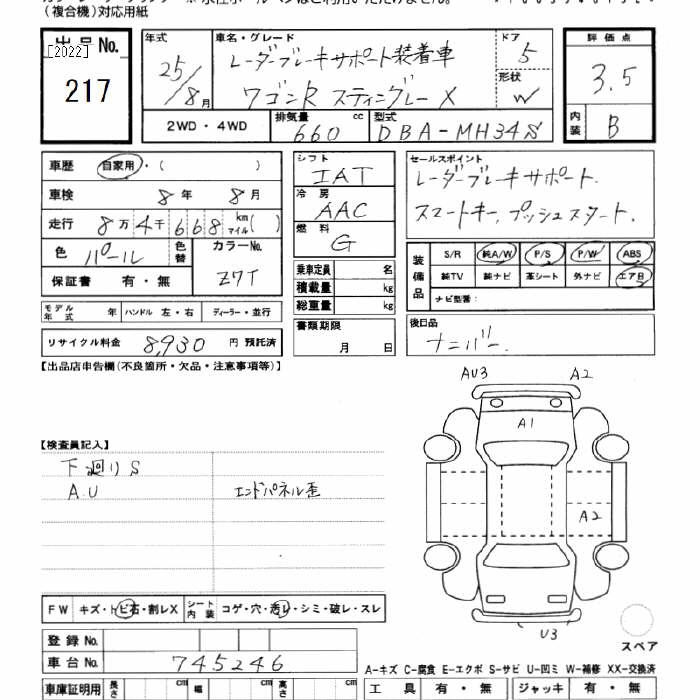 (複合機)対応用紙
出品No. [2022] 217
年式 25/8月
車名・グレード レーダーブレーキサポート装着車
ワゴンR スティングレー X
ドア 5
形状 W
評価点 3.5
内装 B
2WD・4WD
排気量 660 cc
型式 DBA-MH34S
車歴 自家用・( )
車検 8年 8月
走行 8万4千668 km マイル( )
色 パール 色替
カラーNo. Z7T
保証書 有・無
モデル年式 年 ハンドル 左・右 ディーラー・並行
リサイクル料金 8,930 円 預託済
シフト IAT
冷房 AAC
燃料 G
乗車定員 名
積載量 kg
総重量 kg
書類期限 月 日
セールスポイント
レーダーブレーキサポート.
スマートキー, プッシュスタート.
装備品 S/R 純A/W P/S P/W ABS
純TV 純ナビ 革シート 外ナビ エアB
ナビ型番:
後日品
ナンバー.
【出品店申告欄(不良箇所・欠品・注意事項等)】
AU3 A2
A1
A2
U3
【検査員記入】
下廻りS
A.U エンドパネル歪
FW キズ・トビ石・割レX シート内装 コゲ・穴・汚レ・シミ・破レ・スレ
登録No.
車台No. 745246
車庫証明用 長さ cm 幅 cm 高さ cm
スペア
A-キズ C-腐食 E-エクボ S-サビ U-凹ミ W-補修 XX-交換済
工具 有・無 ジャッキ 有・無